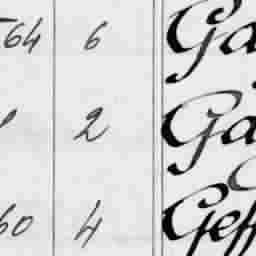 64 6 Ga
2 Ga
60 4 Geff